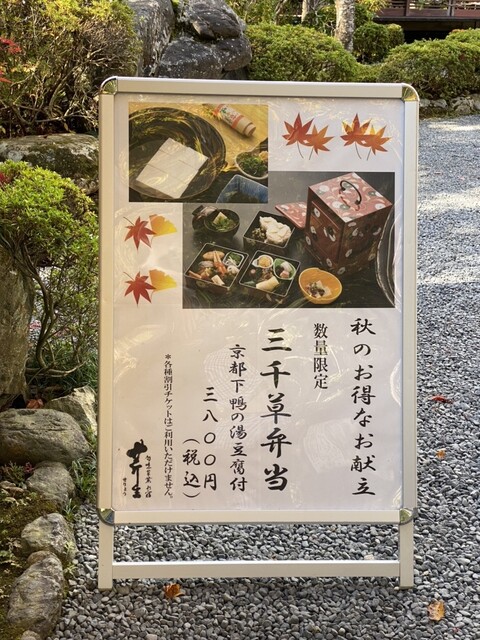 秋のお得なお献立
数量限定
三千草弁当
京都下鴨の湯豆腐付
三八〇〇円
（税込）
＊各種割引チケットはご利用いただけません。
せりょう